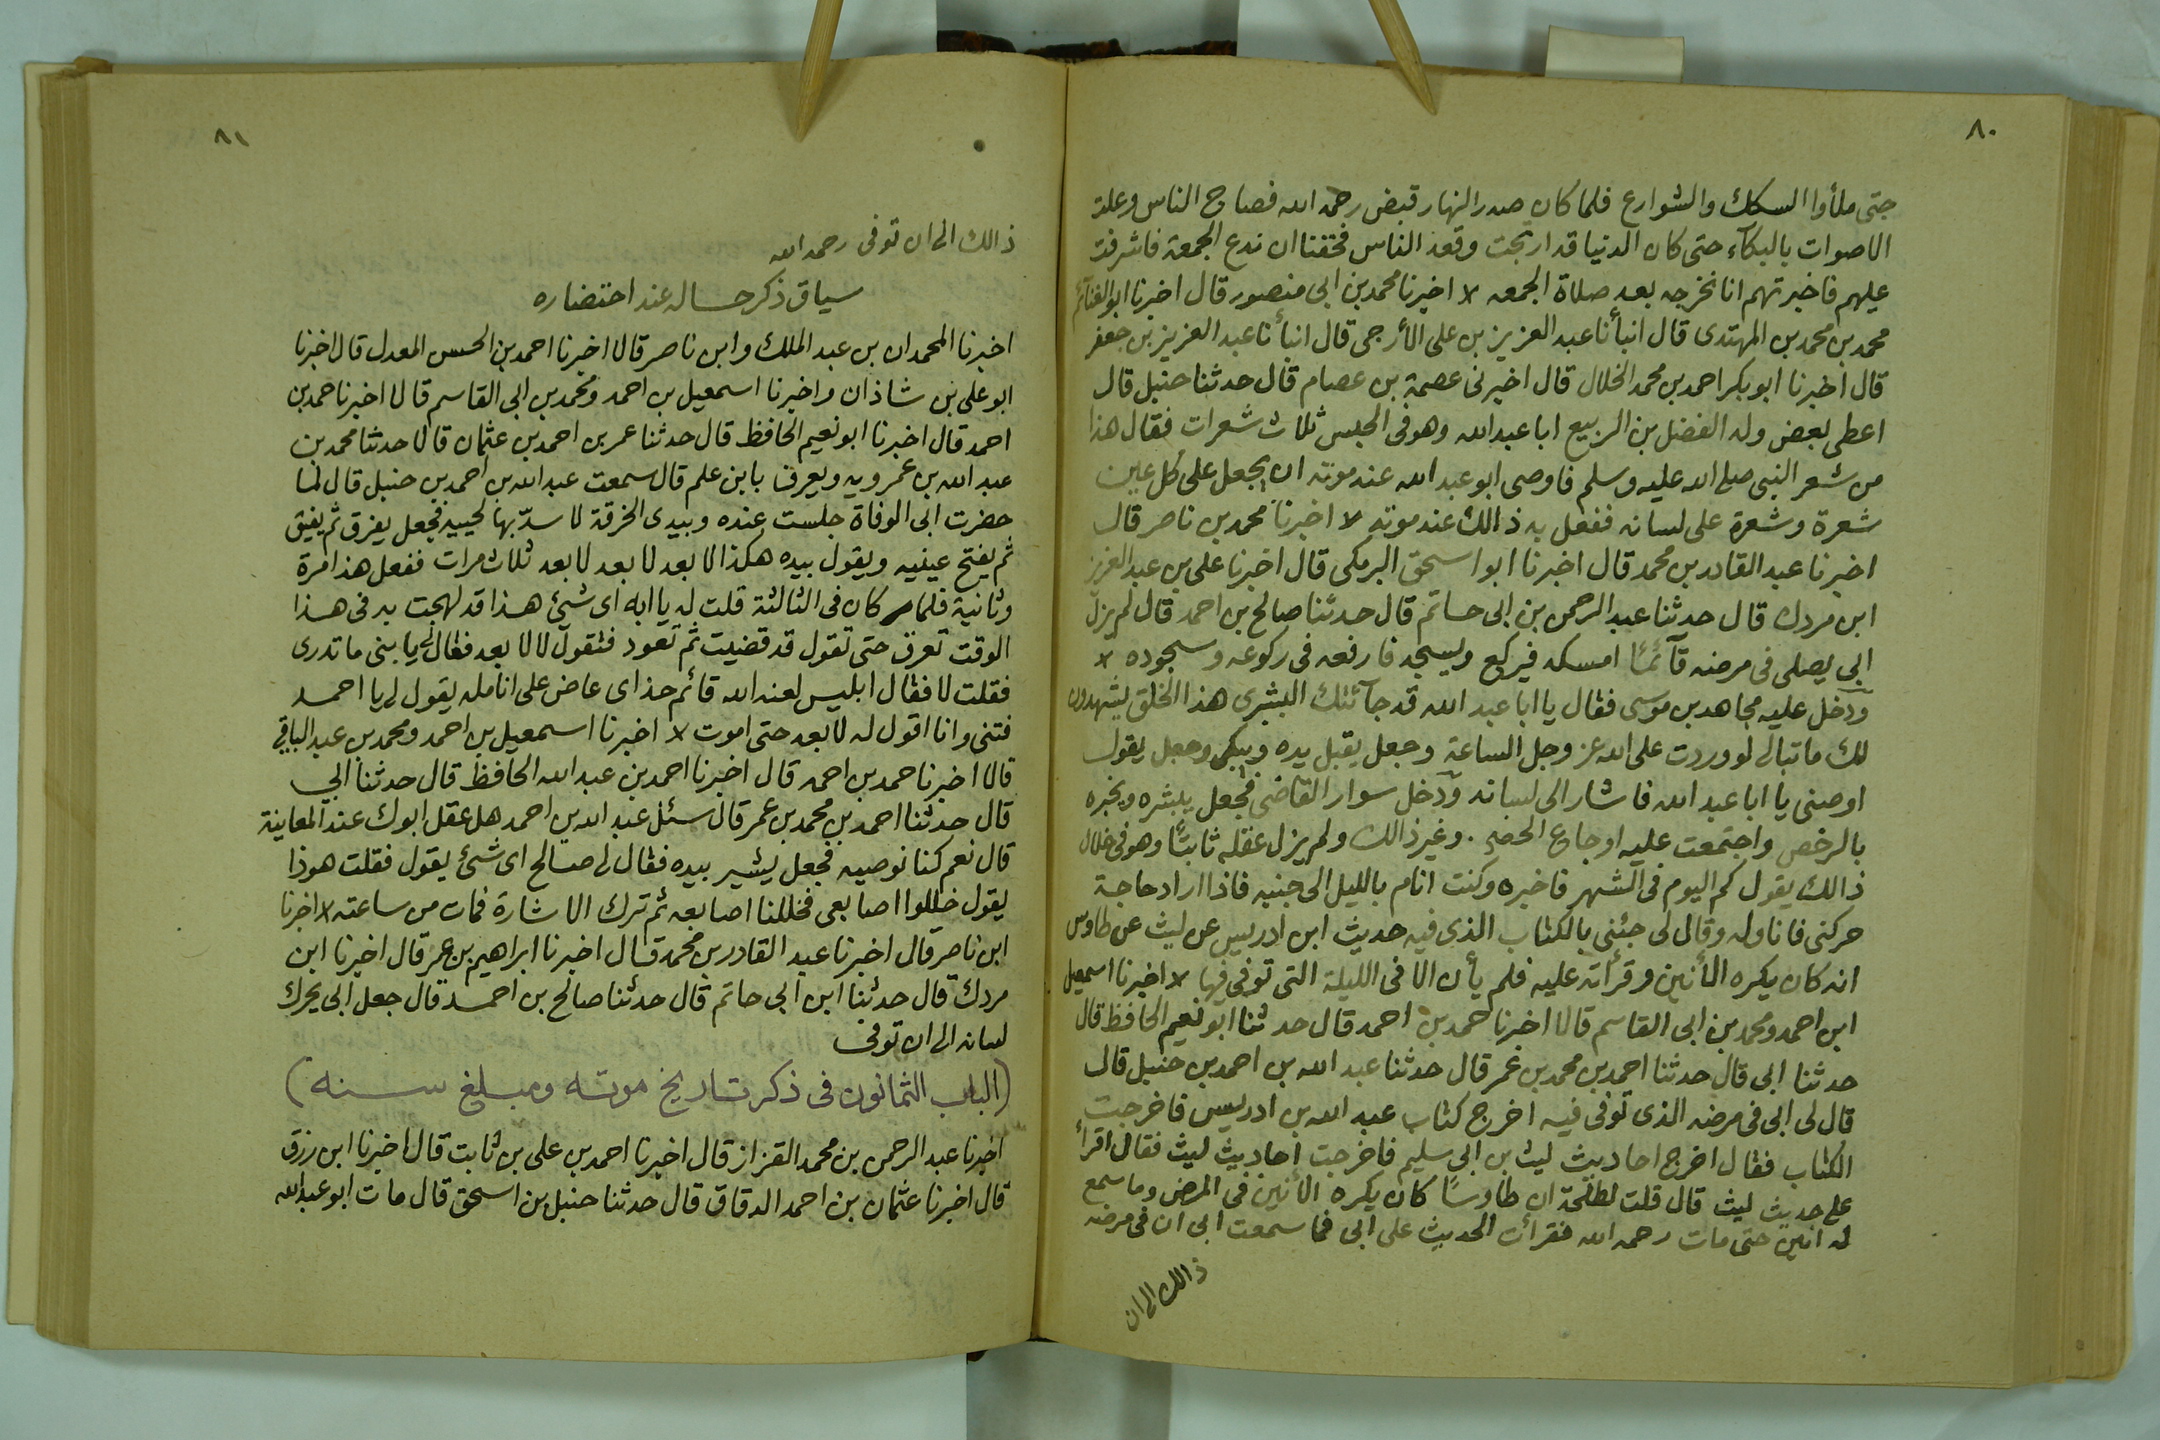 ٨٠
حتى ملأوا السكك والشوارع فلما كان صدر النهار قبض رحمه الله فصاح الناس وعلت
الاصوات بالبكآء حتى كان الدنيا قد ارتجت وقعد الناس فخفنا ان ندع الجمعة فاشرفت
عليهم فاخبرتهم انا نخرجه بعد صلاة الجمعه لا اخبرنا محمد بن ابى منصور قال اخبرنا ابو الغنآئم
محمد بن محمد بن المهتدى قال انبأنا عبد العزيز بن على الأزجى قال انبأنا عبد العزيز بن جعفر
قال اخبرنا ابو بكر احمد بن محمد الخلال قال اخبرنى عصمة بن عصام قال حدثنا حنبل قال
اعطى بعض ولد الفضل بن الربيع ابا عبد الله وهو فى الحبس ثلاث شعرات فقال هذا
من شعر النبى صلى الله عليه وسلم فاوصى ابو عبد الله عند موته ان يجعل على كل عين
شعرة وشعرة على لسانه ففعل به ذالك عند موته لا اخبرنا محمد بن ناصر قال
اخبرنا عبد القادر بن محمد قال اخبرنا ابو اسحق البرمكى قال اخبرنا على بن عبد العزيز
ابن مردك قال حدثنا عبد الرحمن بن ابى حاتم قال حدثنا صالح بن احمد قال لم يزل
ابى يصلى فى مرضه قآئمًا امسكه فيركع ويسجد فارفعه فى ركوعه وسجوده لا
ودخل عليه مجاهد بن موسى فقال يا ابا عبد الله قد جآئتك البشرى هذا الخلق يشهدون
لك ما تبالى لو وردت على الله عز وجل الساعة وجعل يقبل يده ويبكى وجعل يقول
اوصنى يا ابا عبد الله فاشار الى لسانه ودخل سوار القاضى فجعل يبشره ويخبره
بالرخص واجتمعت عليه اوجاع الحصر وغير ذالك ولم يزل عقله ثابتًا وهو فى خلال
ذالك يقول كم اليوم فى الشهر فاخبره وكنت انام بالليل الى جنبه فاذا اراد حاجة
حركنى فاناوله وقال لى جئنى بالكتاب الذى فيه حديث ابن ادريس عن ليث عن طاوس
انه كان يكره الأنين وقرأته عليه فلم يأن الا فى الليلة التى توفى فيها لا اخبرنا اسمعيل
ابن احمد ومحمد بن ابى القاسم قالا اخبرنا حمد بن احمد قال حدثنا ابو نعيم الحافظ قال
حدثنا ابى قال حدثنا احمد بن محمد بن عمر قال حدثنا عبد الله بن احمد بن حنبل قال
قال لى ابى فى مرضه الذى توفى فيه اخرج كتاب عبد الله بن ادريس فاخرجت
الكتاب فقال اخرج احاديث ليث بن ابى سليم فاخرجت احاديث ليث فقال اقرأ
على حديث ليث قال قلت لطلحة ان طاوسًا كان يكره الأنين فى المرض وما سمع
له انين حتى مات رحمه الله فقرأت الحديث على ابى فما سمعت ابى ان فى مرضه
ذالك الى ان
٨١
ذالك الى ان توفى رحمه الله
سياق ذكر حاله عند احتضاره
اخبرنا المحمدان بن عبد الملك وابن ناصر قالا اخبرنا احمد بن الحسن المعدل قال اخبرنا
ابو على بن شاذان واخبرنا اسمعيل بن احمد ومحمد بن ابى القاسم قالا اخبرنا حمد بن
احمد قال اخبرنا ابو نعيم الحافظ قال حدثنا عمر بن احمد بن عثمان قالا حدثنا محمد بن
عبد الله بن عمرويه ويعرف بابن علم قال سمعت عبد الله بن احمد بن حنبل قال لما
حضرت ابى الوفاة جلست عنده وبيدى الخرقة لا سدّ بها لحييه فجعل يغرق ثم يفيق
ثم يفتح عينيه ويقول بيده هكذا لا بعد لا بعد لا بعد ثلاث مرات ففعل هذا مرة
وثانية فلما كان فى الثالثة قلت له يا ابه اى شئ هذا قد لهجت به فى هذا
الوقت تعرق حتى تقول قد قضيت ثم تعود فتقول لا لا بعد فقال لى يا بنى ما تدرى
فقلت لا فقال ابليس لعنه الله قائم حذاى عاض على انامله يقول لى يا احمد
فتنى وانا اقول له لا بعد حتى اموت لا اخبرنا اسمعيل بن احمد ومحمد بن عبد الباقى
قالا اخبرنا حمد بن احمد قال اخبرنا احمد بن عبد الله الحافظ قال حدثنا ابى
قال حدثنا احمد بن محمد بن عمر قال سئل عبد الله بن احمد هل عقل ابوك عند المعاينة
قال نعم كنا نوصيه فجعل يشير بيده فقال لى صالح اى شئ يقول فقلت هوذا
يقول خللوا اصابعى فخللنا اصابعه ثم ترك الاشارة فمات من ساعته لا اخبرنا
ابن ناصر قال اخبرنا عبد القادر بن محمد قال اخبرنا ابراهيم بن عمر قال اخبرنا ابن
مردك قال حدثنا ابن ابى حاتم قال حدثنا صالح بن احمد قال جعل ابى يحرك
لسانه الى ان توفى
(الباب الثمانون فى ذكر تاريخ موته ومبلغ سنه)
اخبرنا عبد الرحمن بن محمد القزاز قال اخبرنا احمد بن على بن ثابت قال اخبرنا ابن رزق
قال اخبرنا عثمان بن احمد الدقاق قال حدثنا حنبل بن اسحق قال مات ابو عبد الله